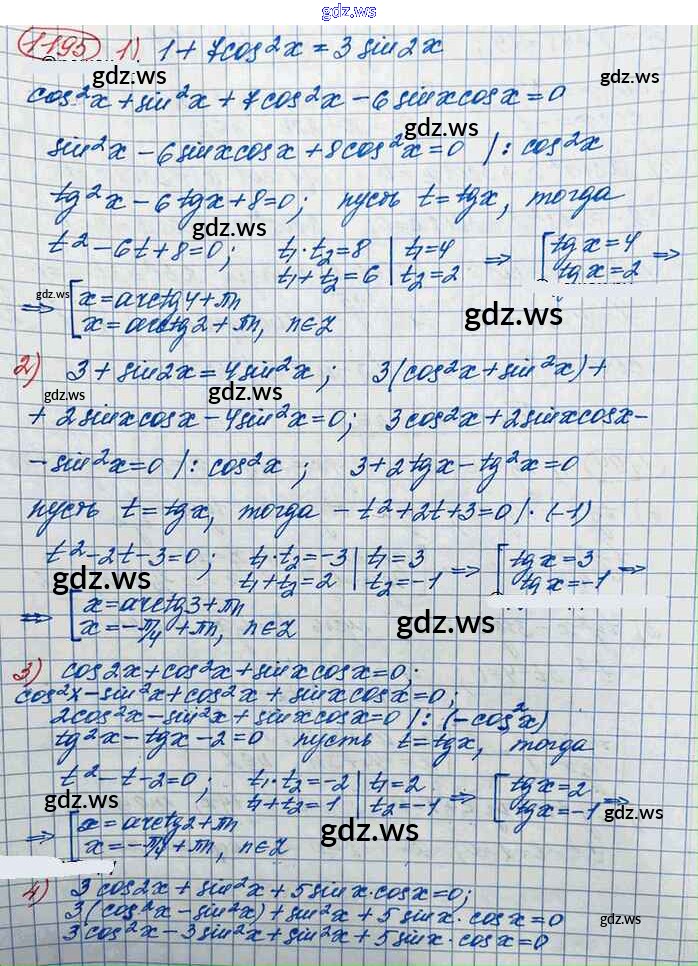 gdz.ws
1195 1) 1 + 7cos²x = 3 sin2x
gdz.ws
cos²x + sin²x + 7cos²x − 6 sinxcosx = 0
gdz.ws
gdz.ws
sin²x − 6sinxcosx + 8cos²x = 0 /: cos²x
tg²x − 6tgx + 8 = 0; пусть t = tgx, тогда
gdz.ws
t² − 6t + 8 = 0; t₁·t₂ = 8 | t₁ = 4 ⇒ [ tgx = 4 ⇒
t₁ + t₂ = 6 | t₂ = 2 tgx = 2
gdz.ws
⇒ [ x = arctg4 + πn
x = arctg2 + πn, n∈Z
gdz.ws
2) 3 + sin2x = 4sin²x; 3(cos²x + sin²x) +
gdz.ws
gdz.ws
+ 2sinxcosx − 4sin²x = 0; 3cos²x + 2sinxcosx −
− sin²x = 0 /: cos²x; 3 + 2tgx − tg²x = 0
gdz.ws
gdz.ws
пусть t = tgx, тогда − t² + 2t + 3 = 0 /· (−1)
t² − 2t − 3 = 0; t₁·t₂ = −3 | t₁ = 3 ⇒ [ tgx = 3 ⇒
t₁ + t₂ = 2 | t₂ = −1 tgx = −1
gdz.ws
gdz.ws
⇒ [ x = arctg3 + πn
x = −π/4 + πn, n∈Z
gdz.ws
3) cos2x + cos²x + sinxcosx = 0;
cos²x − sin²x + cos²x + sinxcosx = 0;
2cos²x − sin²x + sinxcosx = 0 /: (−cos²x)
tg²x − tgx − 2 = 0 пусть t = tgx, тогда
t² − t − 2 = 0; t₁·t₂ = −2 | t₁ = 2 ⇒ [ tgx = 2 ⇒
t₁ + t₂ = 1 | t₂ = −1 tgx = −1
gdz.ws
gdz.ws
⇒ [ x = arctg2 + πn
x = −π/4 + πn, n∈Z
gdz.ws
4) 3cos2x + sin²x + 5sinx·cosx = 0;
gdz.ws
3(cos²x − sin²x) + sin²x + 5sinx·cosx = 0
gdz.ws
3cos²x − 3sin²x + sin²x + 5sinx·cosx = 0
gdz.ws